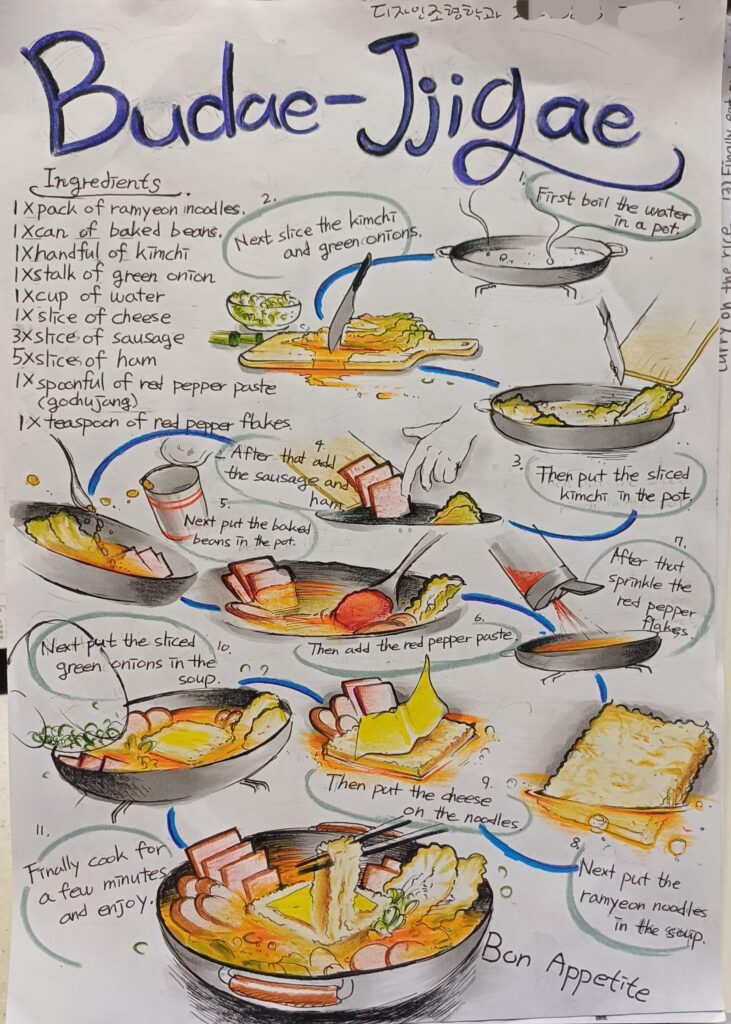 디자인조형학과
Budae-Jjigae
Ingredients
1Xpack of ramyeon noodles.
1Xcan of baked beans.
1Xhandful of kimchi
1Xstalk of green onion
1Xcup of water
1Xslice of cheese
3Xslice of sausage
5Xslices of ham
1Xspoonful of red pepper paste
(gochujang)
1Xteaspoon of red pepper flakes.
1.
First boil the water
in a pot.
2.
Next slice the kimchi
and green onions.
3.
Then put the sliced
kimchi in the pot.
4.
After that add
the sausage and
ham
5.
Next put the baked
beans in the pot.
6.
Then add the red pepper paste
7.
After that
sprinkle the
red pepper
flakes.
8.
Next put the
ramyeon noodles
in the soup.
9.
Then put the cheese
on the noodles
10.
Next put the sliced
green onions in the
soup.
11.
Finally cook for
a few minutes
and enjoy.
Bon Appetite
curry on the rice. (2) Finally eat